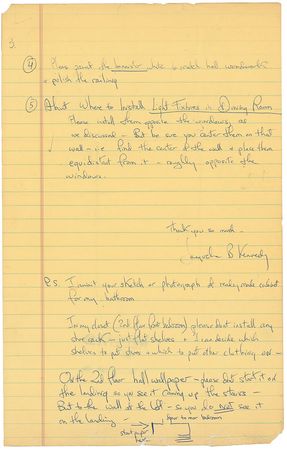 3.
④ Please paint the bannister white to match hall woodwork
+ polish the railing
⑤ About Where to Install Light Fixtures in Dining Room
Please install them opposite the windows, as
we discussed - But be sure you center them on that
wall - i.e. find the center of the wall + place them
equidistant from it - roughly opposite the
windows.
Thank you so much -
Jacqueline B Kennedy
P.S. I await your sketch or photograph of ready made cabinet
for my bathroom
In my closet (2nd floor front bedroom) please don't install any
shoe rack - just flat shelves + I can decide which
shelves to put shoes + which to put other clothing on -
On the 2d floor hall wallpaper - please don't start it on
the landing so you see it coming up the stairs -
But to the wall at the left - so you do NOT see it
on the landing -
door to my bedroom
start paper
here